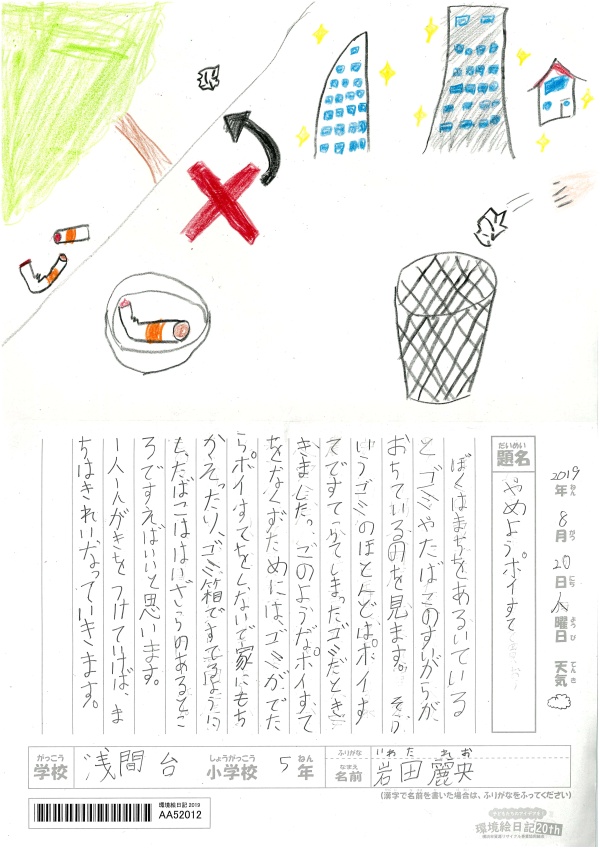 2019年8月20日火曜日 天気
ねん がつ にち ようび てんき
だいめい
題名
やめようポイすて
ぼくはまちをあるいている
とゴミやたばこのすいがらが
おちているのを見ます。そう
いうゴミのほとんどはポイす
てですてられてしまったゴミだとき
きました。このようなポイすて
をなくすためには、ゴミがでた
らポイすてをしないで家にもち
かえったり、ゴミ箱ですてるように
も、たばこははいざらのあるとこ
ろですえばいいと思います。
一人一人がきをつけていけば、ま
ちはきれいなっていきます。
がっこう
学校
浅間台
しょうがっこう
小学校
5
ねん
年
ふりがな
いわた れお
なまえ
名前
岩田麗央
(漢字で名前を書いた場合は、ふりがなをふってください)
環境絵日記 2019
AA52012
環境絵日記20th